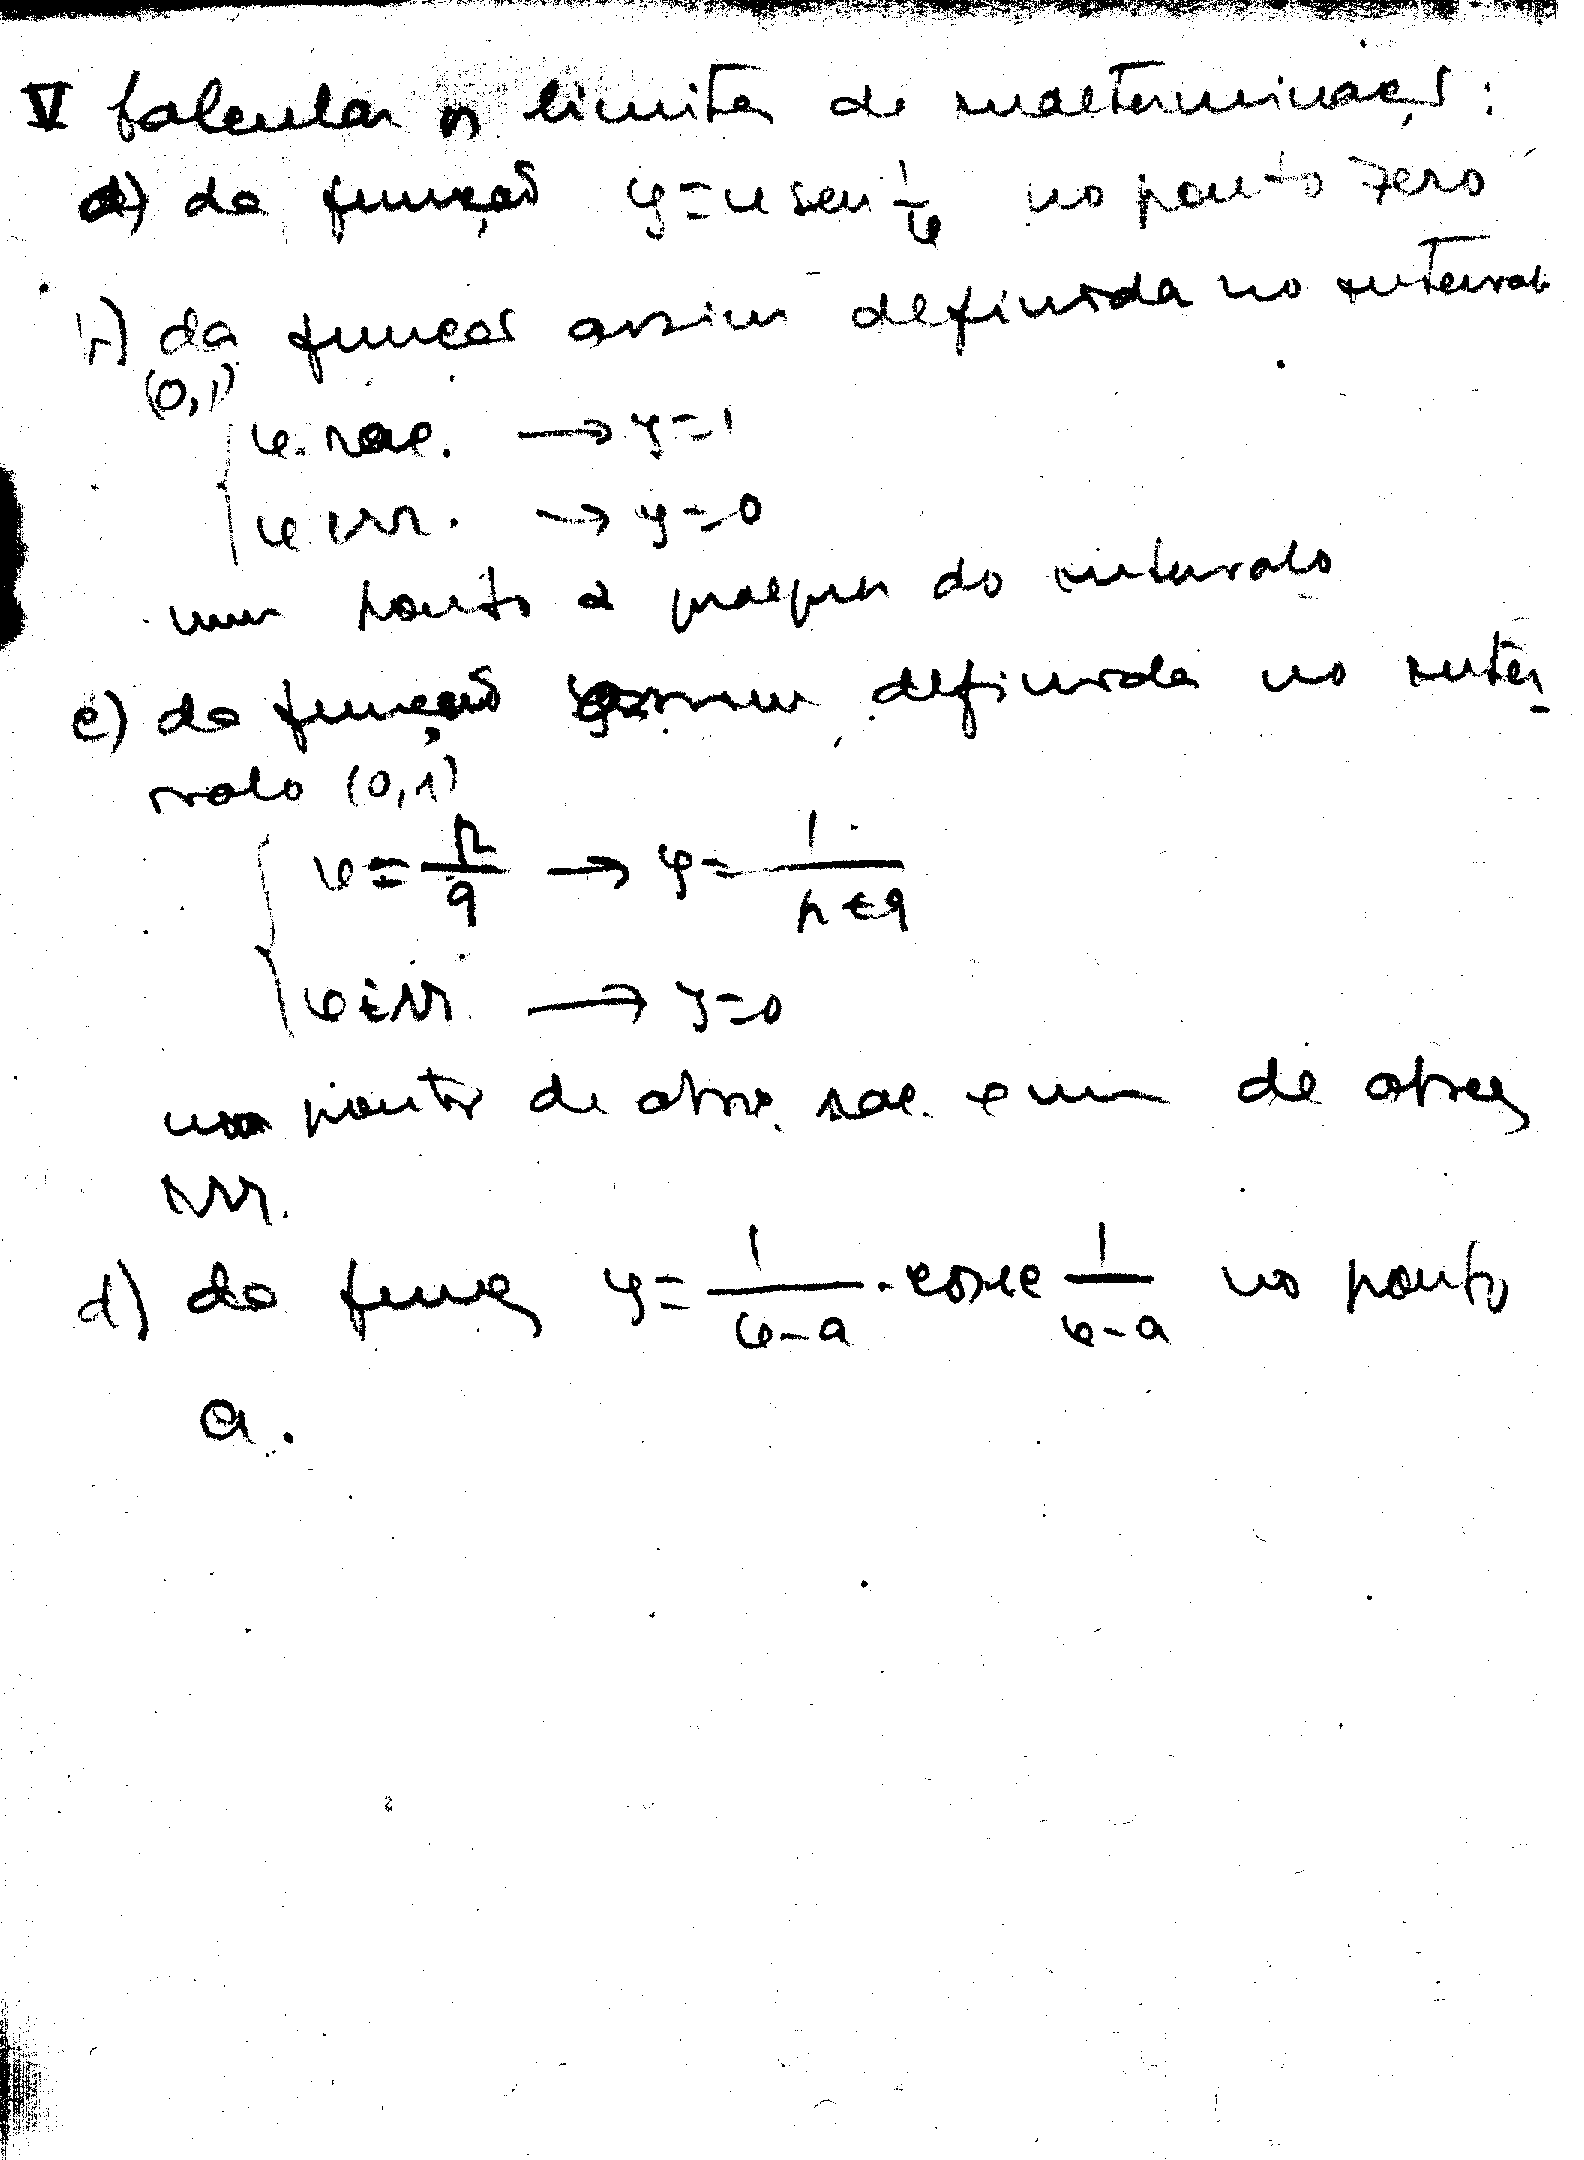 V Calcular os limites de indeterminação:
a) da função y = u sen 1/u no ponto zero
b) da função assim definida no intervalo
(0,1)
u rac. → y=1
u irr. → y=0
num ponto a qualquer do intervalo
c) da função assim definida no inter-
valo (0,1)
u = p/q → y = 1/(p+q)
u irr → y=0
num ponto de absc. rac. e num de absc.
irr.
d) da função y = 1/(u-a) . cosec 1/(u-a) no ponto
a.